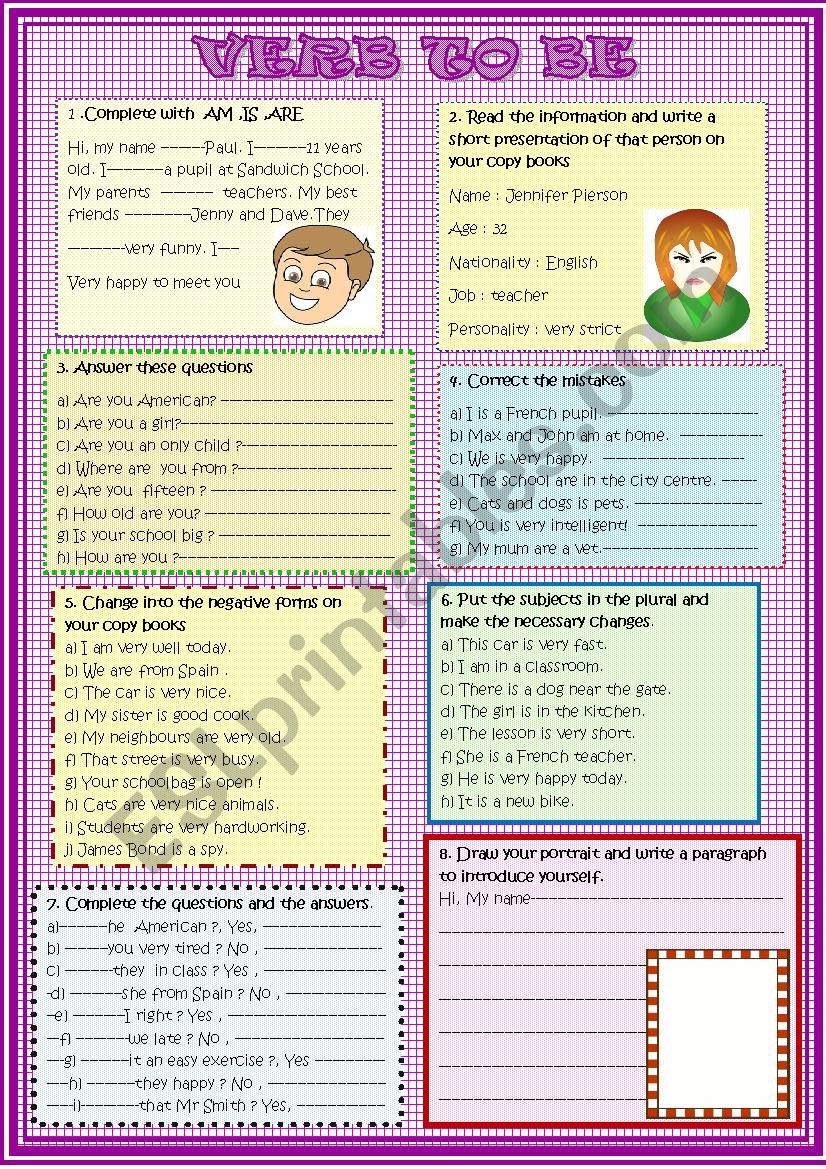 VERB TO BE
1 .Complete with AM ,IS ,ARE
Hi, my name -----Paul. I------11 years
old. I------a pupil at Sandwich School.
My parents ------ teachers. My best
friends --------Jenny and Dave.They
-------very funny. I---
Very happy to meet you
2. Read the information and write a
short presentation of that person on
your copy books
Name : Jennifer Pierson
Age : 32
Nationality : English
Job : teacher
Personality : very strict
3. Answer these questions
a) Are you American? --------------------
b) Are you a girl?--------------------
c) Are you an only child ?------------------
d) Where are you from ?------------------
e) Are you fifteen ? ---------------------
f) How old are you? ---------------------
g) Is your school big ? --------------------
h) How are you ?------------------------
4. Correct the mistakes
a) I is a French pupil.------------------
b) Max and John am at home. ----------
c) We is very happy. ----------------
d) The school are in the city centre. ----
e) Cats and dogs is pets. ---------------
f) You is very intelligent! --------------
g) My mum are a vet.------------------
5. Change into the negative forms on
your copy books
a) I am very well today.
b) We are from Spain .
c) The car is very nice.
d) My sister is good cook.
e) My neighbours are very old.
f) That street is very busy.
g) Your schoolbag is open !
h) Cats are very nice animals.
i) Students are very hardworking.
j) James Bond is a spy.
6. Put the subjects in the plural and
make the necessary changes.
a) This car is very fast.
b) I am in a classroom.
c) There is a dog near the gate.
d) The girl is in the kitchen.
e) The lesson is very short.
f) She is a French teacher.
g) He is very happy today.
h) It is a new bike.
7. Complete the questions and the answers.
a)------he American ?, Yes, --------------
b) -----you very tired ? No , --------------
c) ------they in class ? Yes , --------------
-d) ------she from Spain ? No , ------------
-e) ------I right ? Yes , ------------------
--f) ------we late ? No , ------------------
---g) ------it an easy exercise ?, Yes --------
----h) ------they happy ? No , -------------
----i)-------that Mr Smith ? Yes, ----------
8. Draw your portrait and write a paragraph
to introduce yourself.
Hi, My name-----------------------------
ESLprintables.com